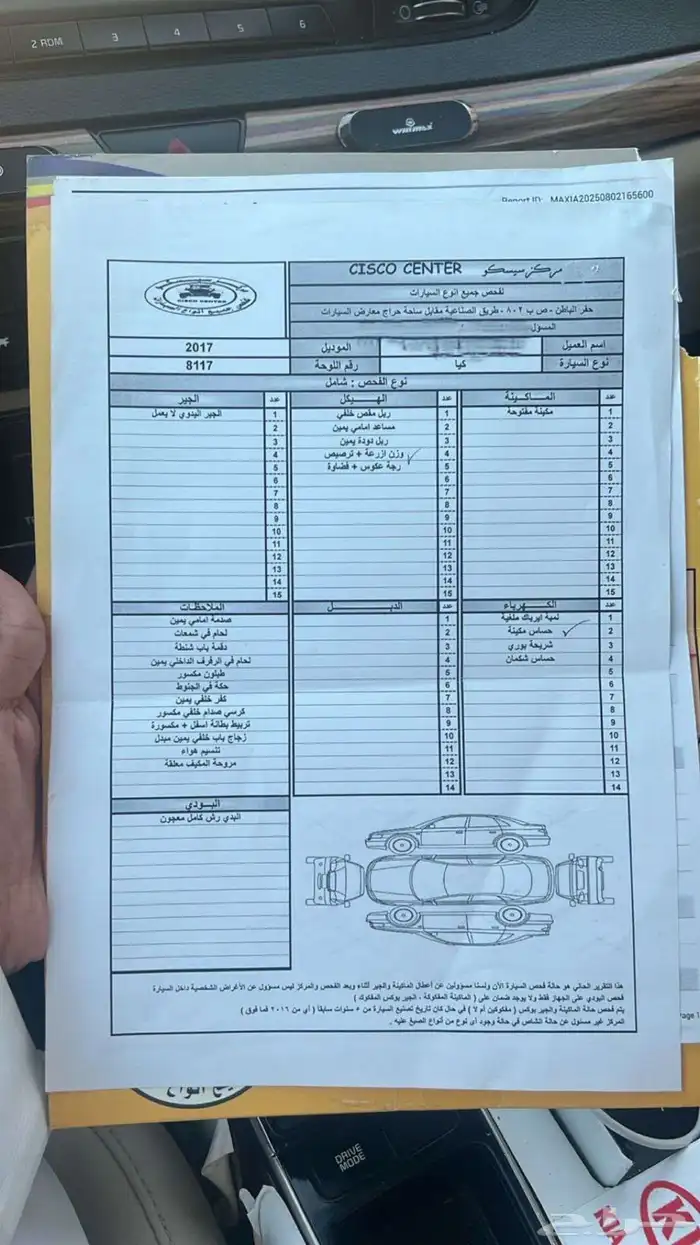 2 RDM 3 4 5 6
Report ID: MAXIA20250802165600
CISCO CENTER مركز سيسكو
لفحص جميع انوع السيارات
حفر الباطن - ص ب ٨٠٢ - طريق الصناعية مقابل ساحة حراج معارض السيارات
المسؤل
اسم العميل
الموديل 2017
نوع السيارة كيا رقم اللوحة 8117
CISCO CENTER
نوع الفحص : شامل
عدد الماكينة
1 مكينة مفتوحة
2
3
4
5
6
7
8
9
10
11
12
13
14
15
عدد الهيكل
1 ربل مقص خلفي
2 مساعد امامي يمين
3 ربل دودة يمين
4 وزن ازرعة + ترصيص
5 رجة عكوس + فضاوة
6
7
8
9
10
11
12
13
14
15
عدد الجير
1 الجير اليدوي لا يعمل
2
3
4
5
6
7
8
9
10
11
12
13
14
15
عدد الكهرباء
1 لمبة ايرباك ملغية
2 حساس مكينة
3 شريحة بوري
4 حساس شكمان
5
6
7
8
9
10
11
12
13
14
عدد الدبل
1
2
3
4
5
6
7
8
9
10
11
12
13
14
الملاحظات
صدمة امامي يمين
لحام في شمعات
دقمة باب شنطة
لحام في الرفرف الداخلي يمين
طبلون مكسور
حكة في الجنوط
كفر خلفي يمين
كرسي صدام خلفي مكسور
تربيط بطانة اسفل + مكسورة
زجاج باب خلفي يمين مبدل
تنسيم هواء
مروحة المكيف معلقة
البودي
البدي رش كامل معجون
هذا التقرير الحالي هو حالة فحص السيارة الأن ولسنا مسؤولين عن أعطال الماكينة والجير أثناء وبعد الفحص والمركز ليس مسؤول عن الأغراض الشخصية داخل السيارة
فحص البودي على الجهاز فقط ولا يوجد ضمان على ( الماكينة المفكوكة ، الجير بوكس المفكوك )
يتم فحص حالة الماكينة والجير بوكس ( مفكوكين أم لا ) في حال كان تاريخ تصنيع السيارة من ٥ سنوات سابقاً ( أي من ٢٠١٦ فما فوق )
المركز غير مسئول عن حالة الشاص في حالة وجود أى نوع من أنواع الصبغ عليه .
DRIVE
MODE